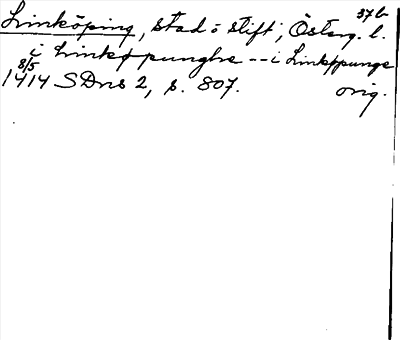 37b
Linköping, stad o stift, Österg. l.
i Linkøpunghe -- i Linkøpunge
8/5
1414 SDns 2, s. 807. orig.